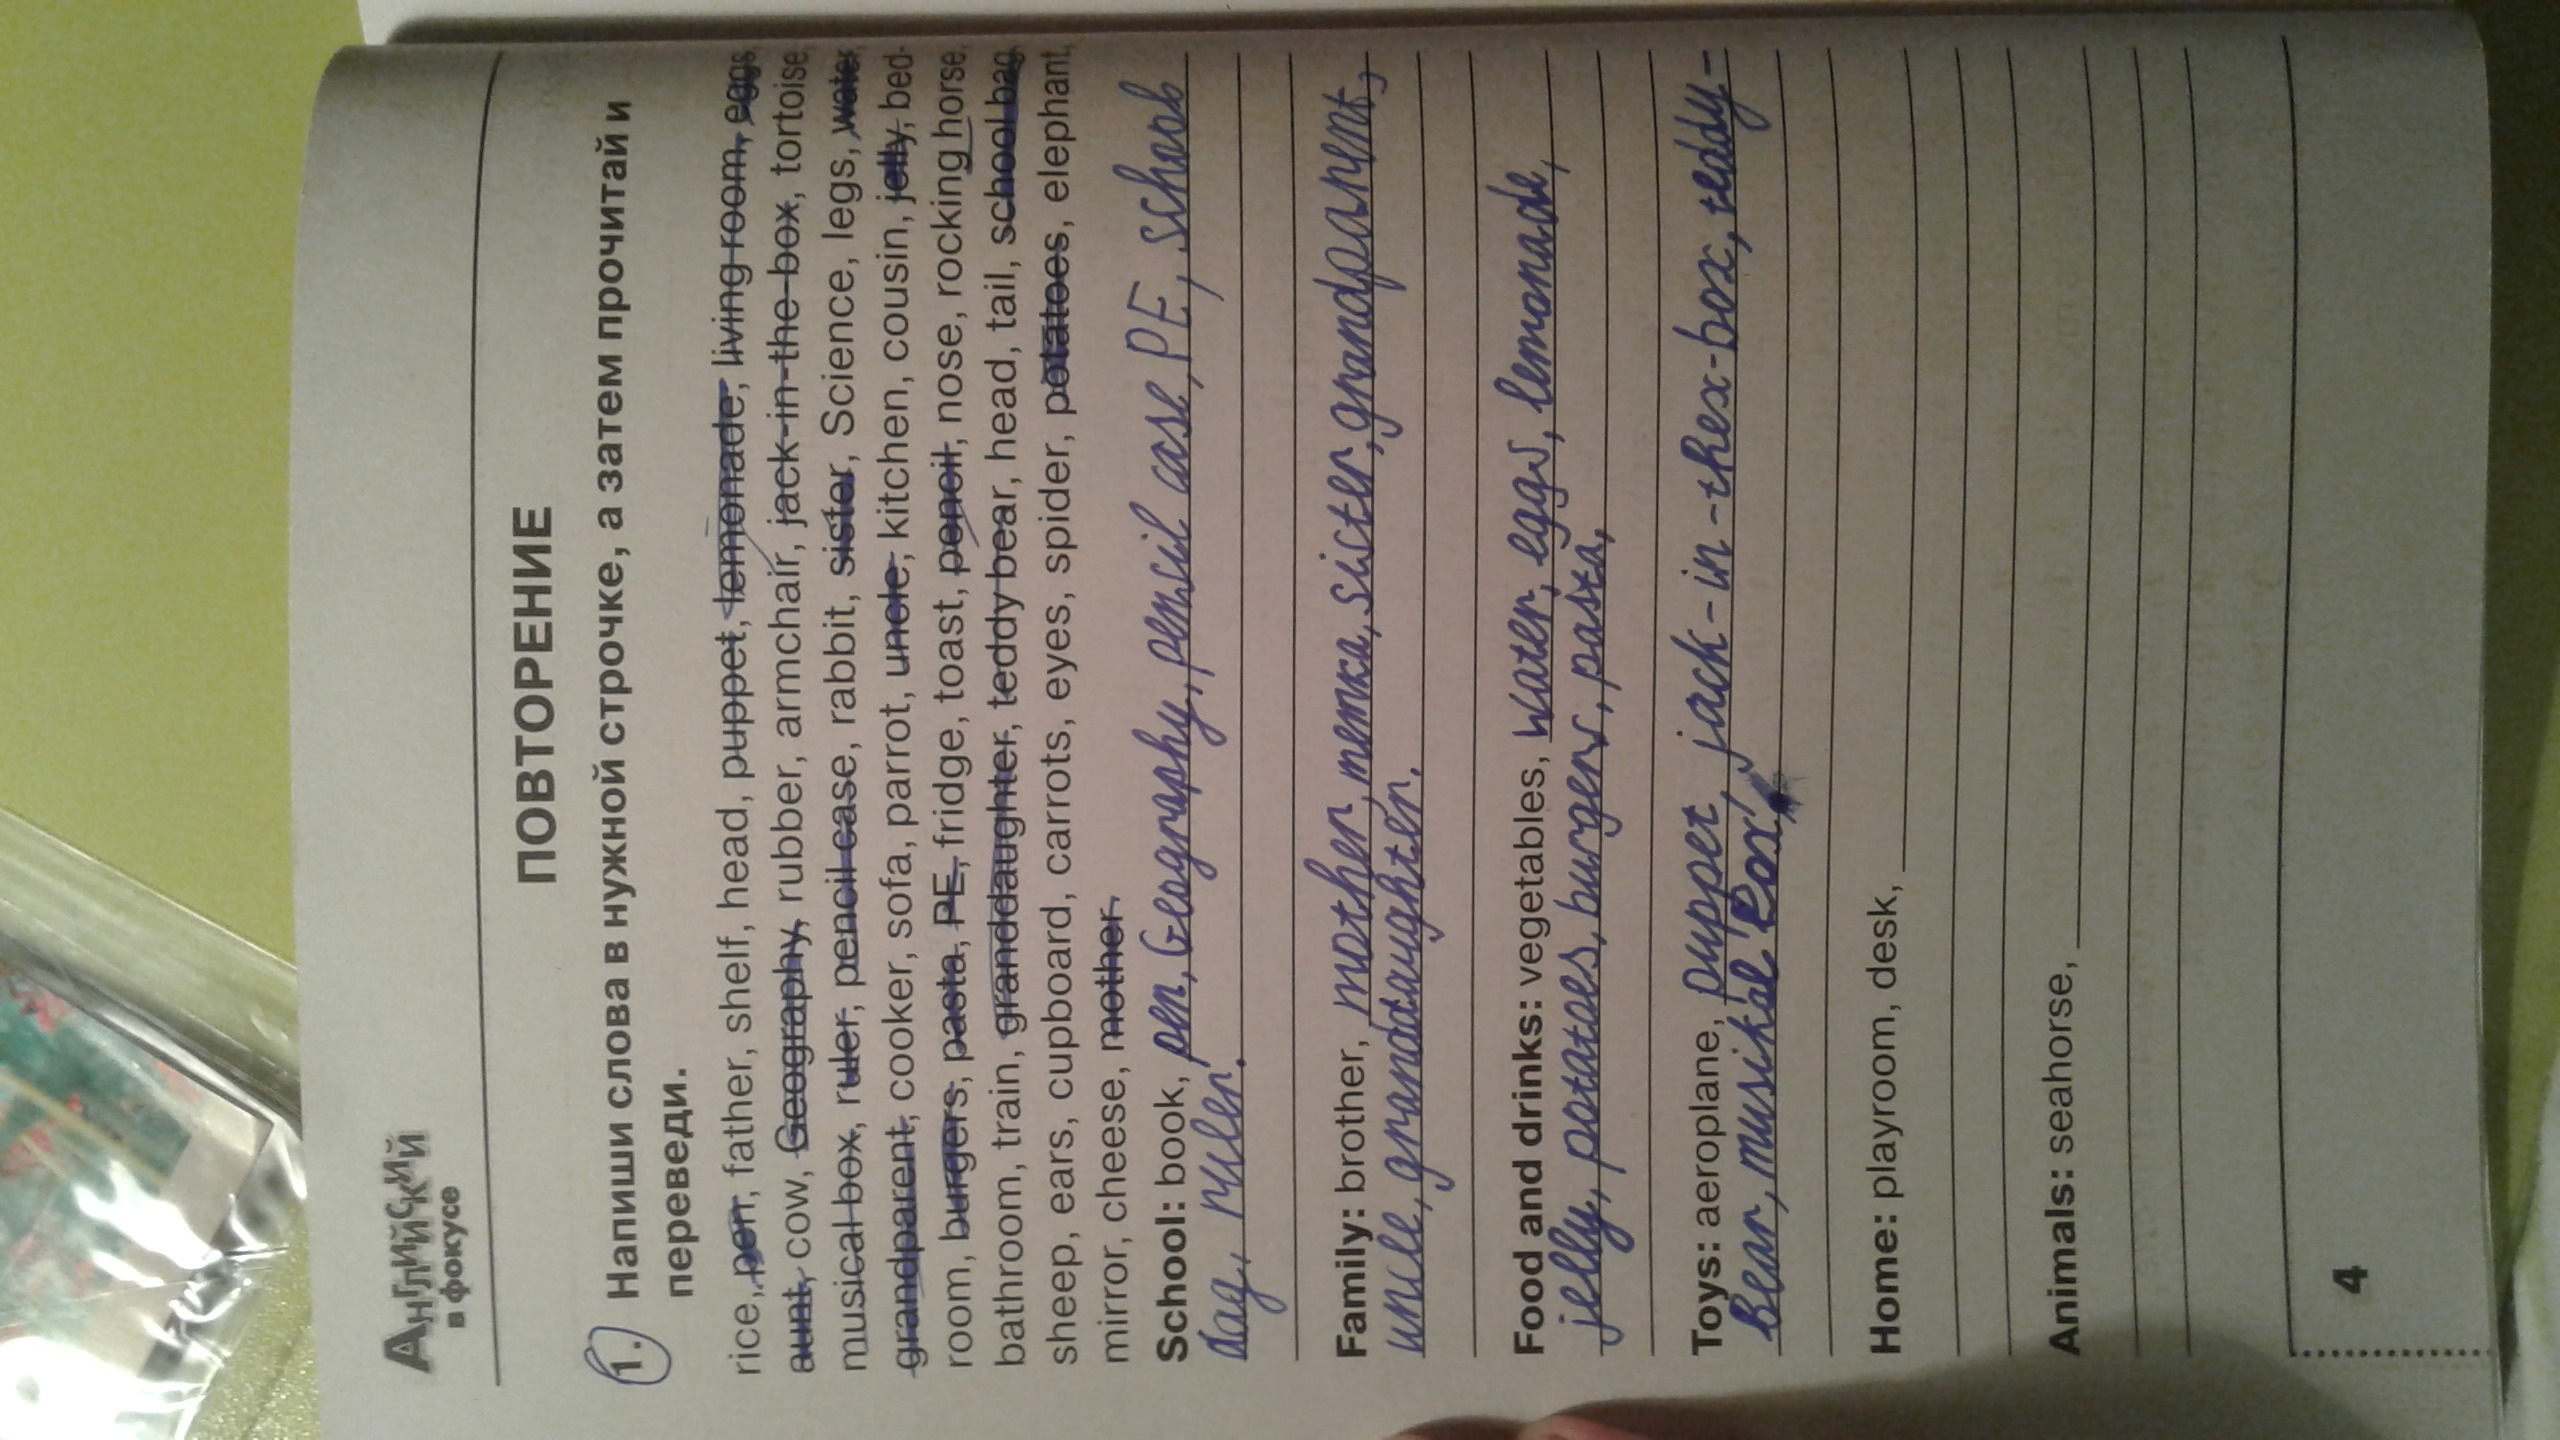 Английский
в фокусе
ПОВТОРЕНИЕ
1. Напиши слова в нужной строчке, а затем прочитай и
переведи.
rice, pen, father, shelf, head, puppet, lemonade, living room, eggs,
aunt, cow, Geography, rubber, armchair, jack-in-the-box, tortoise,
musical box, ruler, pencil case, rabbit, sister, Science, legs, water,
grandparent, cooker, sofa, parrot, uncle, kitchen, cousin, jelly, bed-
room, burgers, pasta, PE, fridge, toast, pencil, nose, rocking horse,
bathroom, train, granddaughter, teddy bear, head, tail, school bag,
sheep, ears, cupboard, carrots, eyes, spider, potatoes, elephant,
mirror, cheese, mother.
School: book, pen, Geography, pensil case, PE, school
bag, ruler.
Family: brother, mother, sicter, grandparent,
uncle, granddaughter.
Food and drinks: vegetables, water, eggs, lemonade,
jelly, potatoes, burgers, pasta,
Toys: aeroplane, puppet, jack-in-thex-box, teddy-
Bear, musikal Box,
Home: playroom, desk,
Animals: seahorse,
4